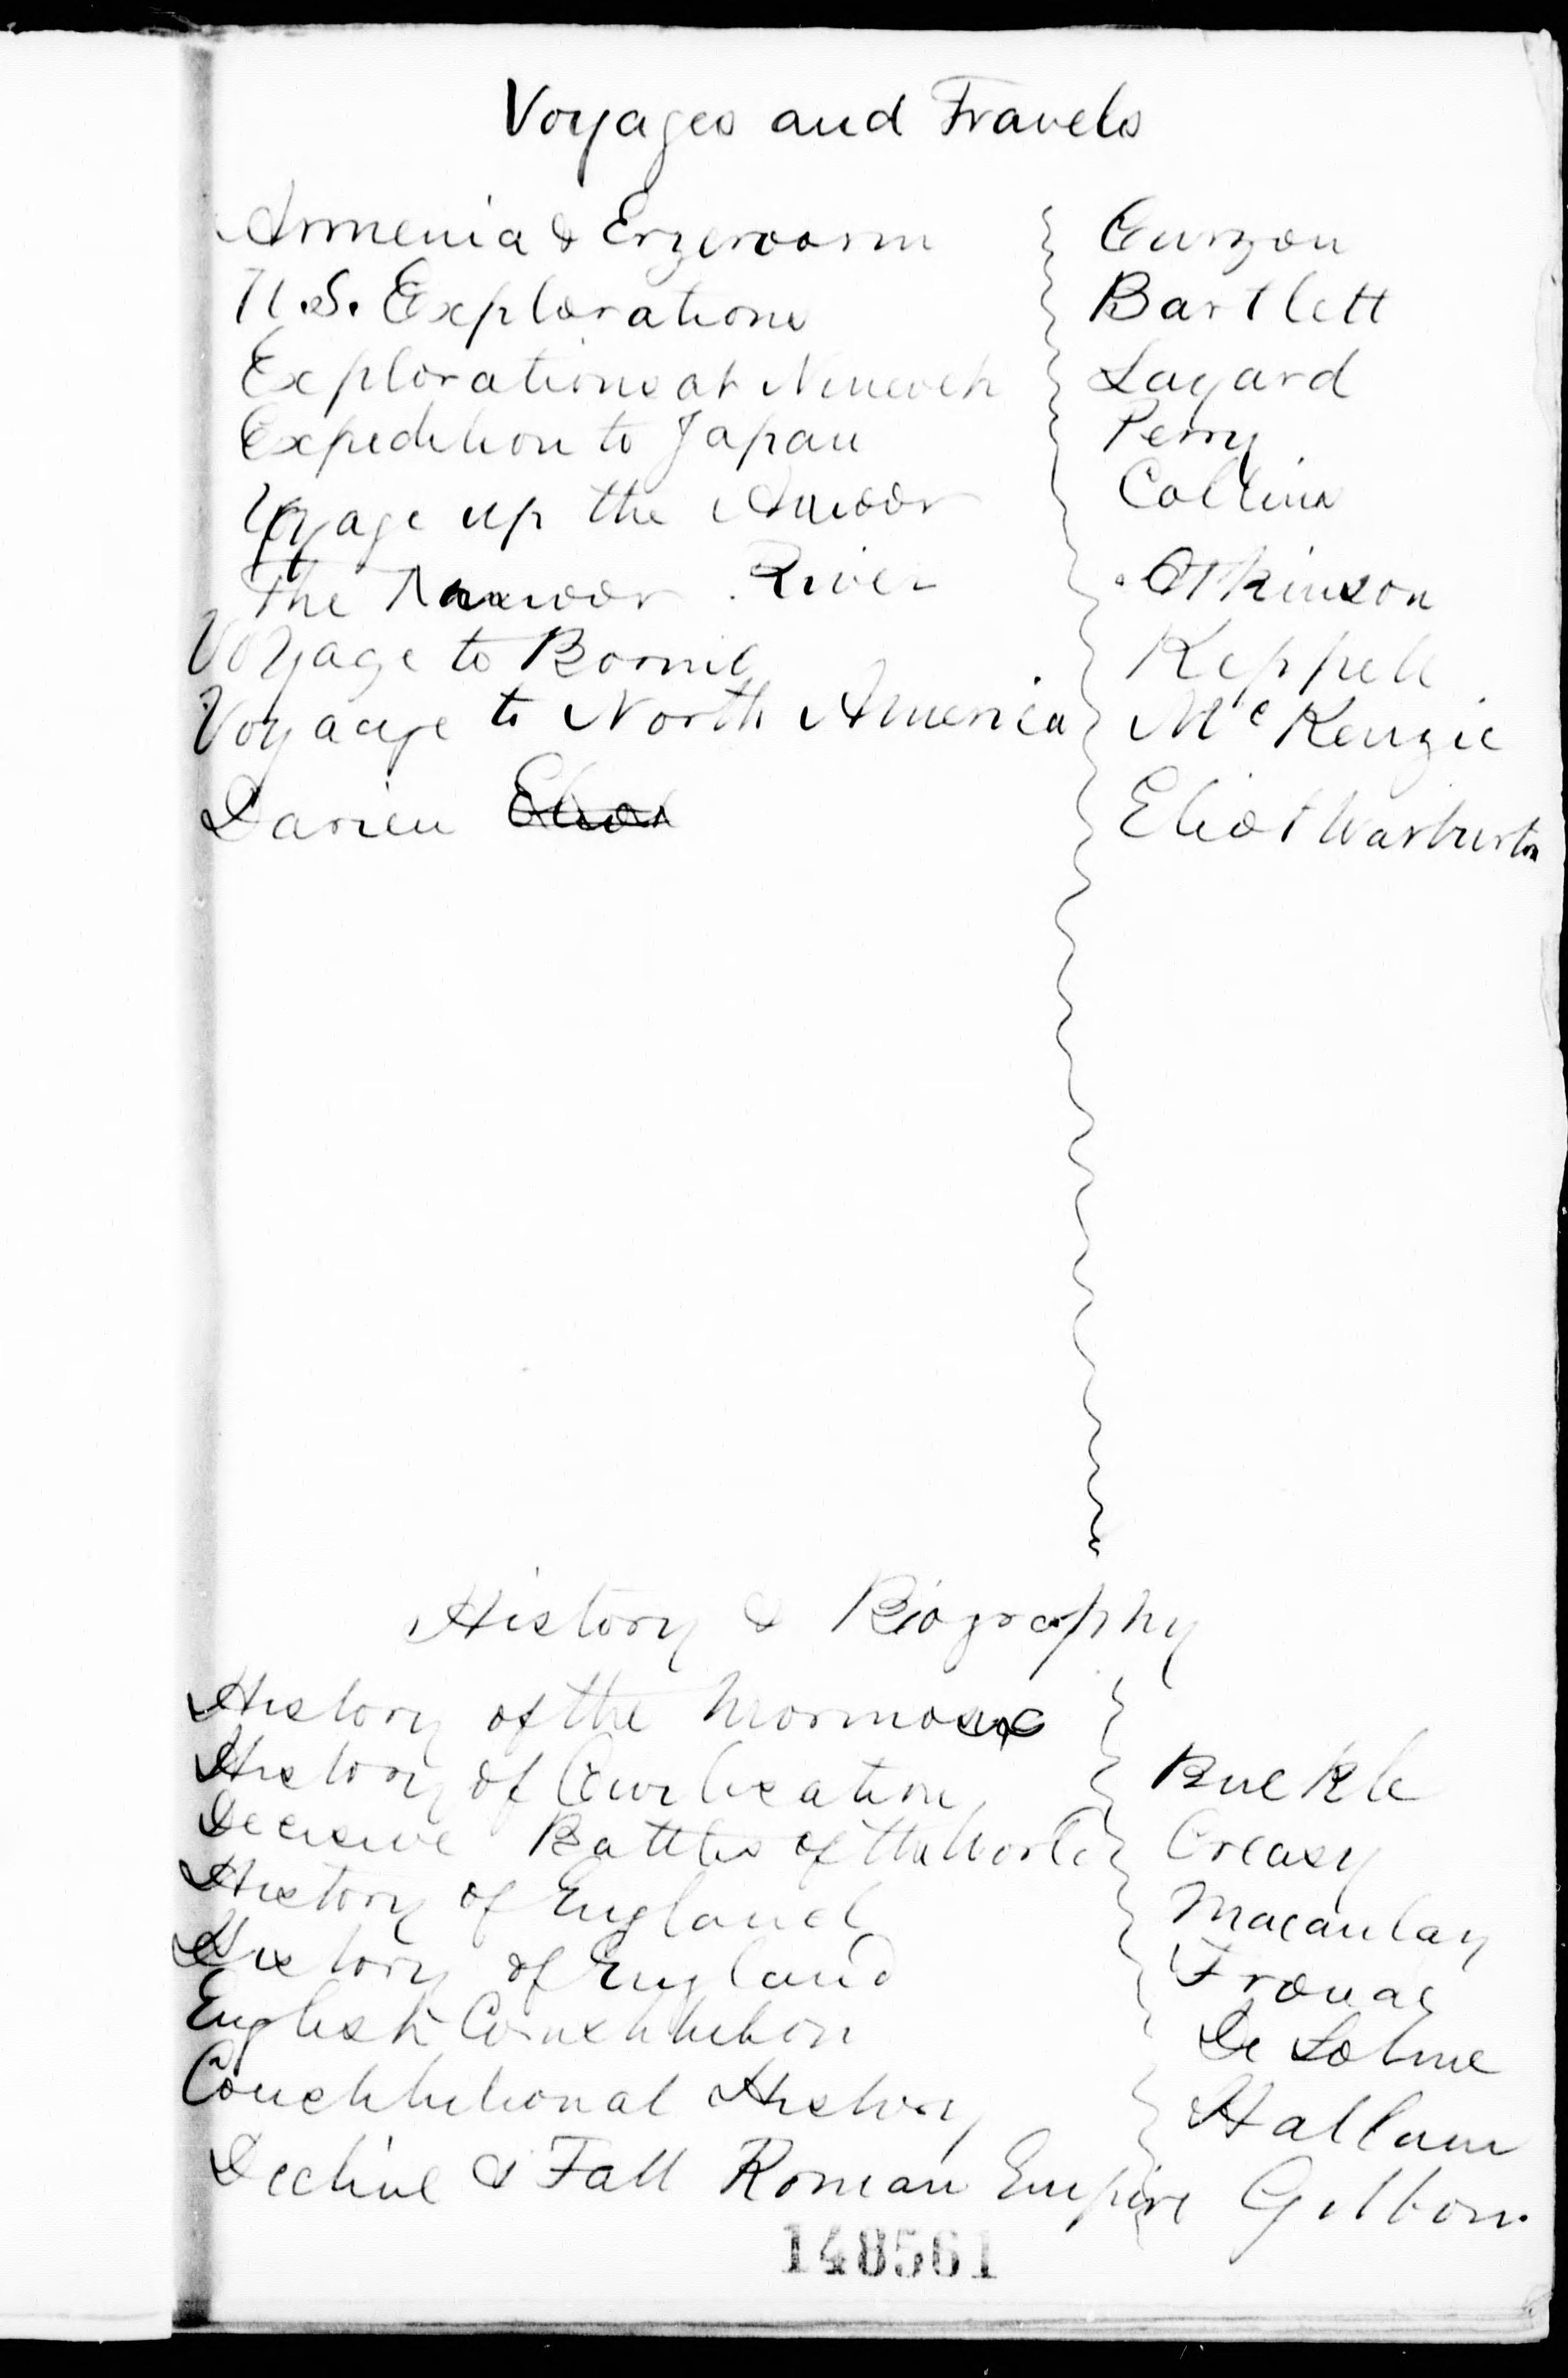 Voyages and Travels
Armenia & Erzeroom Curzon
U.S. Explorations Bartlett
Explorations at Nineveh Layard
Expedition to Japan Perry
Voyage up the Amoor Collins
The Amoor River Atkinson
Voyage to Borneo Keppell
Voyage to North America McKenzie
Darien Eliot Warburton
History & Biography
History of the Mormons
History of Civilization Buckle
Decisive Battles of the World Creasy
History of England Macaulay
History of England Froude
English Constitution De Lolme
Constitutional History Hallam
Decline & Fall Roman Empire Gibbon.
148561